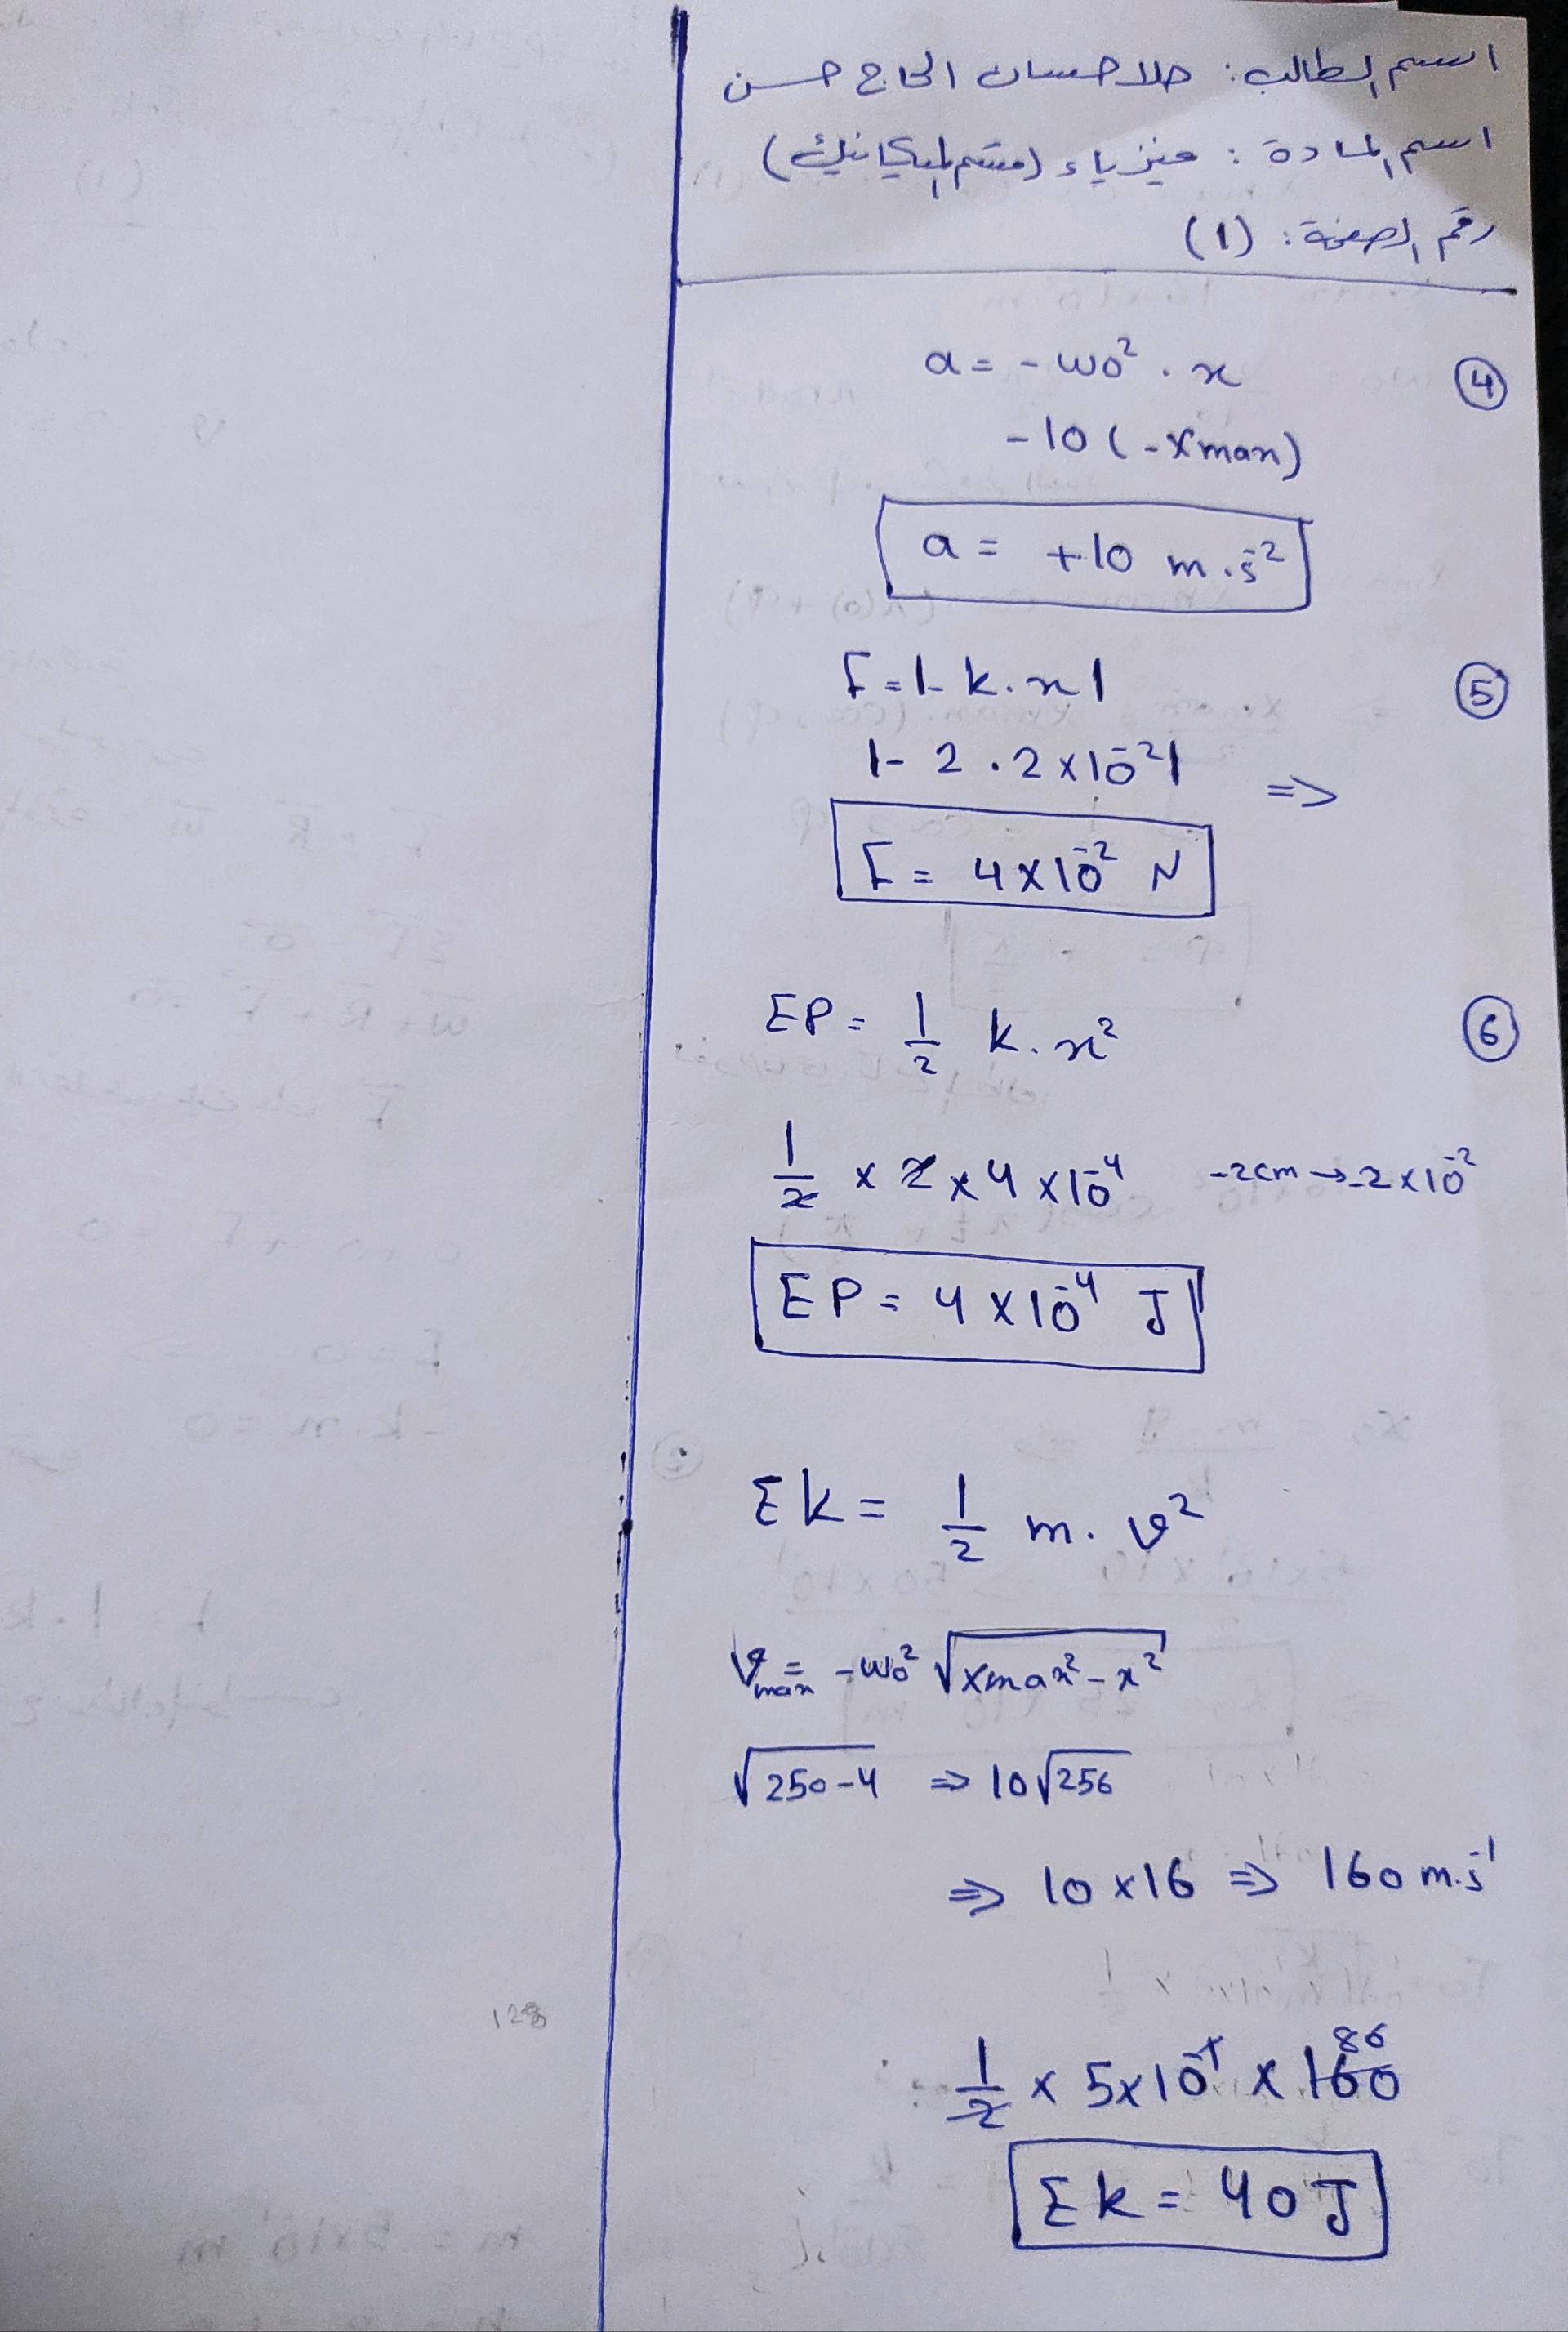 اسم الطالب: حلا حسان الحاج حسن
اسم المادة: فيزياء (قسم الميكانيك)
رقم الصفحة: (1)
④ a = - ω0² . x
- 10 (-Xmax)
a = +10 m.s⁻²
⑤ F = |- k. x|
|- 2 . 2 x 10⁻²| =>
F = 4 x 10⁻² N
⑥ EP = 1/2 k. x²
1/2 x 2 x 4 x 10⁻⁴ -2cm → -2 x 10⁻²
EP = 4 x 10⁻⁴ J
Ek = 1/2 m. v²
vmax = - ω0² √(Xmax² - x²)
√(250-4) => 10√256
=> 10 x 16 => 160 m.s⁻¹
128
1/2 x 5 x 10⁻¹ x 160 80
Ek = 40 J